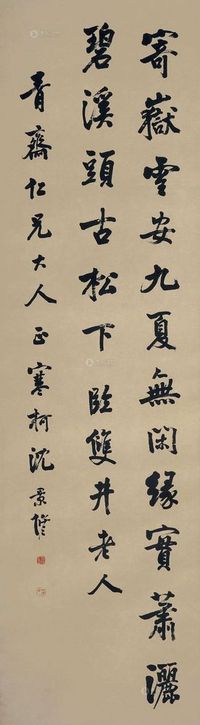 寄嶽雲安九夏無閑緣實蕭灑
碧溪頭古松下 臨雙井老人
青齋仁兄大人正 寒柯沈景修